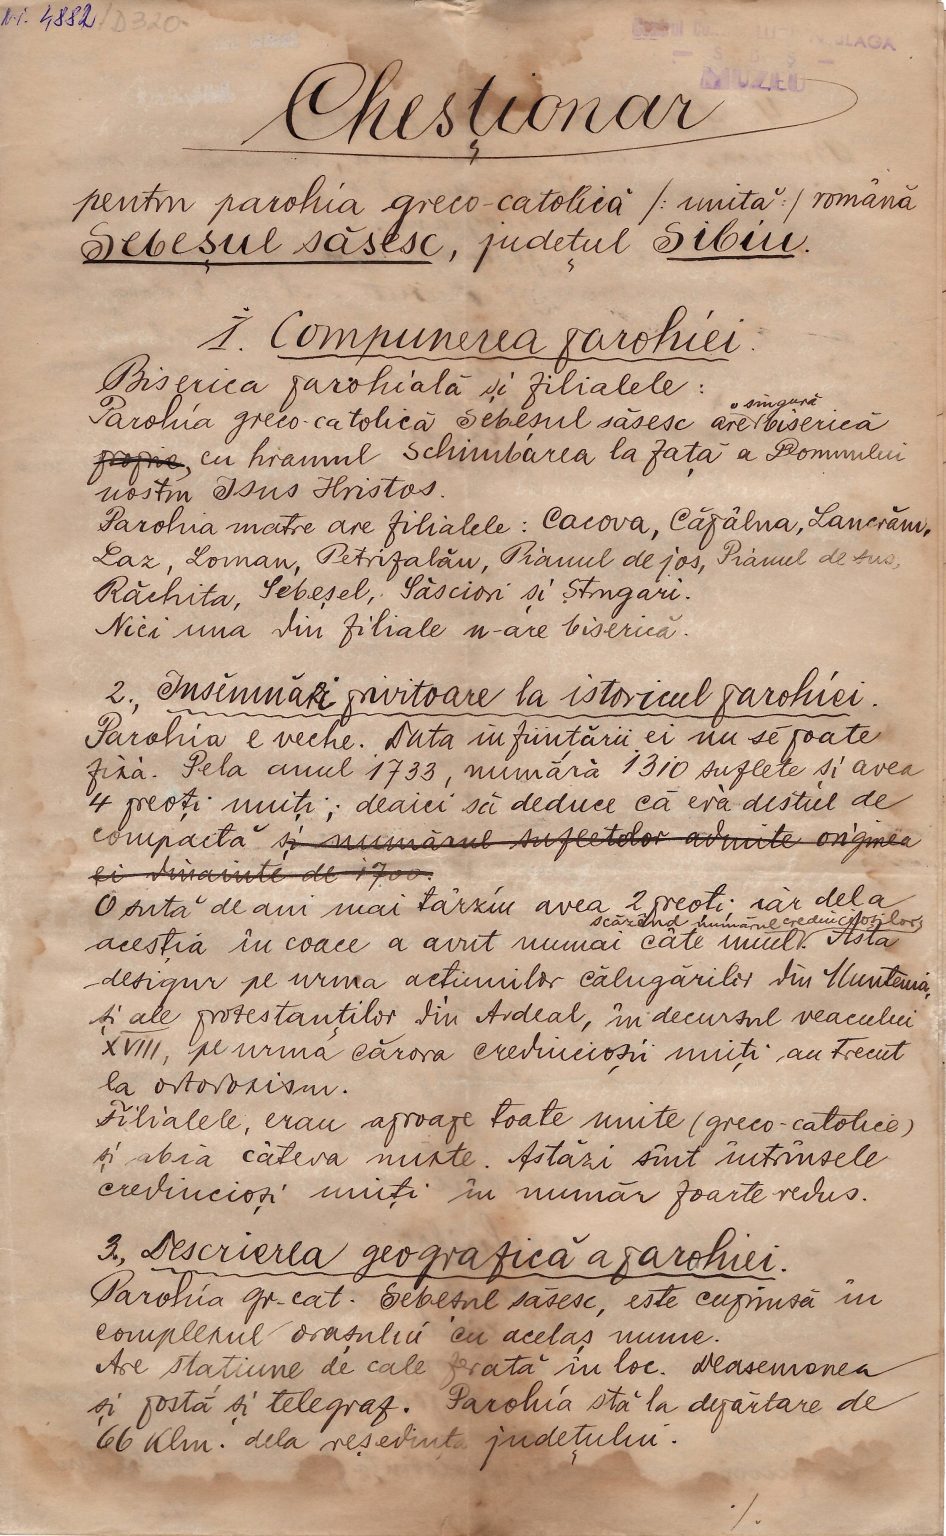 Nr. 4882/D320
LUCIAN BLAGA
MUZEU
Cheștionar
pentru parohia greco-catolică /: unită :/ română
Sebeșul săsesc, județul Sibiu.
1. Compunerea parohiei.
Biserica parohială și filialele:
Parohia greco-catolică Sebeșul săsesc are o singură biserică
proprie, cu hramul Schimbarea la față a Domnului
nostru Isus Hristos.
Parohia matre are filialele: Cacova, Căpâlna, Lancrăm,
Laz, Loman, Petrifalău, Pianul de jos, Pianul de sus,
Răchita, Sebeșel, Săsciori și Strugari.
Nici una din filiale n-are biserică.
2., Insemnări privitoare la istoricul parohiei.
Parohia e veche. Data înființării ei nu se poate
fixá. Pela anul 1733, număra 1310 suflete și avea
4 preoți uniți; deaici să deduce că erà destul de
compactă și numărul sufletelor admite originea
ei dinainte de 1700.
O sută de ani mai târziu avea 2 preoți iar dela
aceștia încoace a avut numai câte unul scăzând numărul credincioșilor. Asta
desigur pe urma acțiunilor călugărilor din Muntenia,
și ale protestanților din Ardeal, în decursul veacului
XVIII, pe urma cărora credincioșii uniți au trecut
la ortodoxism.
Filialele, erau aproape toate unite (greco-catolice)
și abia câteva mixte. Astăzi sînt întrînsele
credincioși uniți în număr foarte redus.
3., Descrierea geografică a parohiei.
Parohia gr-cat. Sebeșul săsesc, este cuprinsă în
complexul orașului cu acelaș nume.
Are stațiune de cale ferată în loc. Deasemenea
și poștă și telegraf. Parohia stă la depărtare de
66 Klm. dela reședința județului.
./.